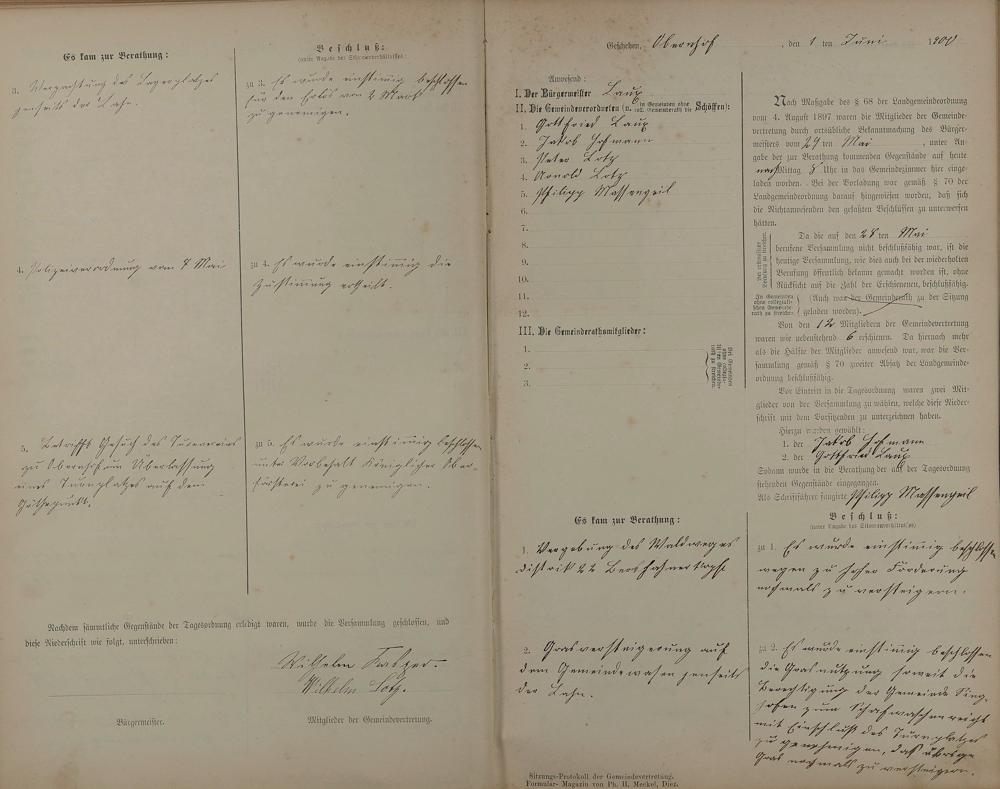 Es kam zur Berathung:
Beschluß:
(unter Angabe des Stimmenverhältnisses)
3. Verpachtung des Lagerplatzes
jenseits der Lahn.
zu 3. Es wurde einstimmig beschlossen
für den Erlös von 2 Mark
zu genemigen.
4. Polizeiverordnung vom 7 Mai
zu 4. Es wurde einstimmig die
Zustimmung ertheilt.
5. Betrifft Gesuch des Turnvereins
zu Obernhof um Überlassung
eines Turnplatzes auf dem
Göthepunkt.
zu 5. Es wurde einstimmig beschlossen
unter Vorbehalt Königlicher Ober-
försterei zu genemigen.
Nachdem sämmtliche Gegenstände der Tagesordnung erledigt waren, wurde die Versammlung geschlossen, und
diese Niederschrift wie folgt, unterschrieben:
Wilhelm
Wilhelm Lotz.
Bürgermeister.
Mitglieder der Gemeindevertretung.
Geschehen, Obernhof, den 1 ten Juni 1900
Anwesend:
I. Der Bürgermeister Laux
II. Die Gemeindeverordneten (u. in Gemeinden ohne coll. Gemeinderath die Schöffen):
1. Gottfried Laux
2. Jakob Hofmann
3. Peter Lotz
4. Arnold Lotz
5. Philipp Massengeil
6.
7.
8.
9.
10.
11.
12.
III. Die Gemeinderathsmitglieder:
1.
2.
3.
Bei Gemeinden
ohne collegia-
lischen Gemeinde-
rath zu streichen.
Nach Maßgabe des § 68 der Landgemeindeordnung
vom 4. August 1897 waren die Mitglieder der Gemeinde-
vertretung durch ortsübliche Bekanntmachung des Bürger-
meisters vom 29 ten Mai, unter An-
gabe der zur Berathung kommenden Gegenstände auf heute
nachMittag 8 Uhr in das Gemeindezimmer hier einge-
laden worden. Bei der Vorladung war gemäß § 70 der
Landgemeindeordnung darauf hingewiesen worden, daß sich
die Nichtanwesenden den gefaßten Beschlüssen zu unterwerfen
hätten.
Da die auf den 28 ten Mai
berufene Versammlung nicht beschlußfähig war, ist die
heutige Versammlung, wie dies auch bei der wiederholten
Berufung öffentlich bekannt gemacht worden ist, ohne
Rücksicht auf die Zahl der Erschienenen, beschlußfähig.
Bei erstmaliger
Berufung zu streichen.
In Gemeinden
ohne collegiali-
schen Gemeinde-
rath zu streichen.
(Auch war der Gemeinderath zu der Sitzung
geladen worden).
Von den 12 Mitgliedern der Gemeindevertretung
waren wie nebenstehend 6 erschienen. Da hiernach mehr
als die Hälfte der Mitglieder anwesend war, war die Ver-
sammlung gemäß § 70 zweiter Absatz der Landgemeinde-
ordnung beschlußfähig.
Vor Eintritt in die Tagesordnung waren zwei Mit-
glieder von der Versammlung zu wählen, welche diese Nieder-
schrift mit dem Vorsitzenden zu unterzeichnen haben.
Hierzu wurden gewählt:
1. der Jakob Hofmann
2. der Gottfried Laux
Sodann wurde in die Berathung der auf der Tagesordnung
stehenden Gegenstände eingegangen.
Als Schriftführer fungirte Philipp Massengeil
Es kam zur Berathung:
Beschluß:
(unter Angabe des Stimmenverhältnisses)
1. Vergebung des Waldweges
Distrikt 22
zu 1. Es wurde einstimmig beschlossen
wegen zu hoher Forderung
nochmals zu versteigern.
2. Grasversteigerung auf
dem Gemeindewasen jenseits
der Lahn.
zu 2. Es wurde einstimmig beschlossen
die Grasnutzung soweit die
Berechtigung der Gemeinde Sing-
hofen zum Schafwaschen reicht
mit Einschluß des Turnplatzes
zu genehmigen, daß übrige
Gras nochmals zu versteigern.
Sitzungs-Protokoll der Gemeindevertretung.
Formular-Magazin von Ph. H. Meckel, Diez.